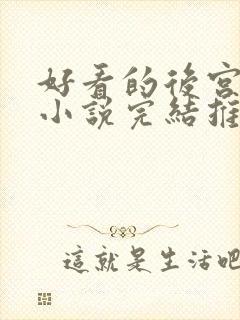 好看的後宮
小說完結推
這就是生活吧